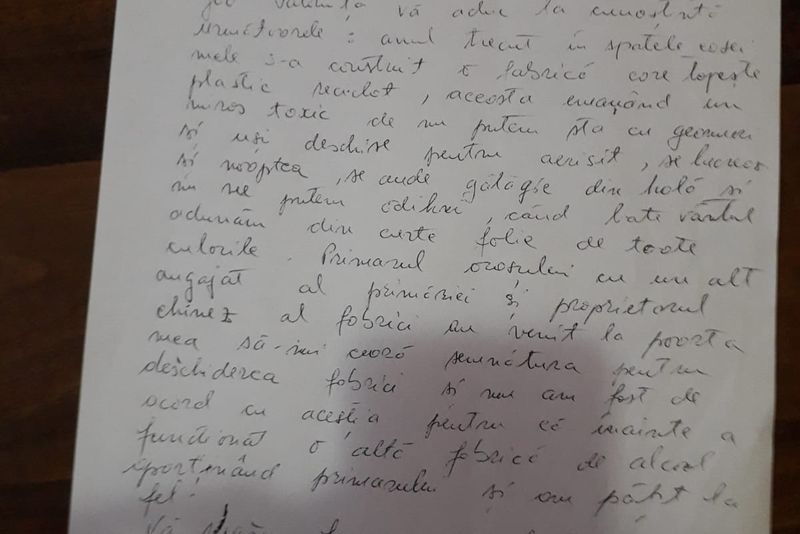 vă aduc la cunoștință
următoarele : anul trecut în spatele casei
mele s-a construit o fabrică care topește
plastic reciclat, aceasta emanând un
miros toxic de nu putem sta cu geamuri
și uși deschise pentru aerisit, se lucrează
și noaptea, se aude gălăgie din hală și
nu ne putem odihni, când bate vântul
adunăm din curte folie de toate
culorile. Primarul orașului cu un alt
angajat al primăriei și proprietarul
chinez al fabrici au venit la poarta
mea să-mi ceară semnătura pentru
deschiderea fabrici și nu am fost de
acord cu aceștia pentru că înainte a
funcționat o altă fabrică de alcool
aparținând primarului și am pățit la
fel!
Vă